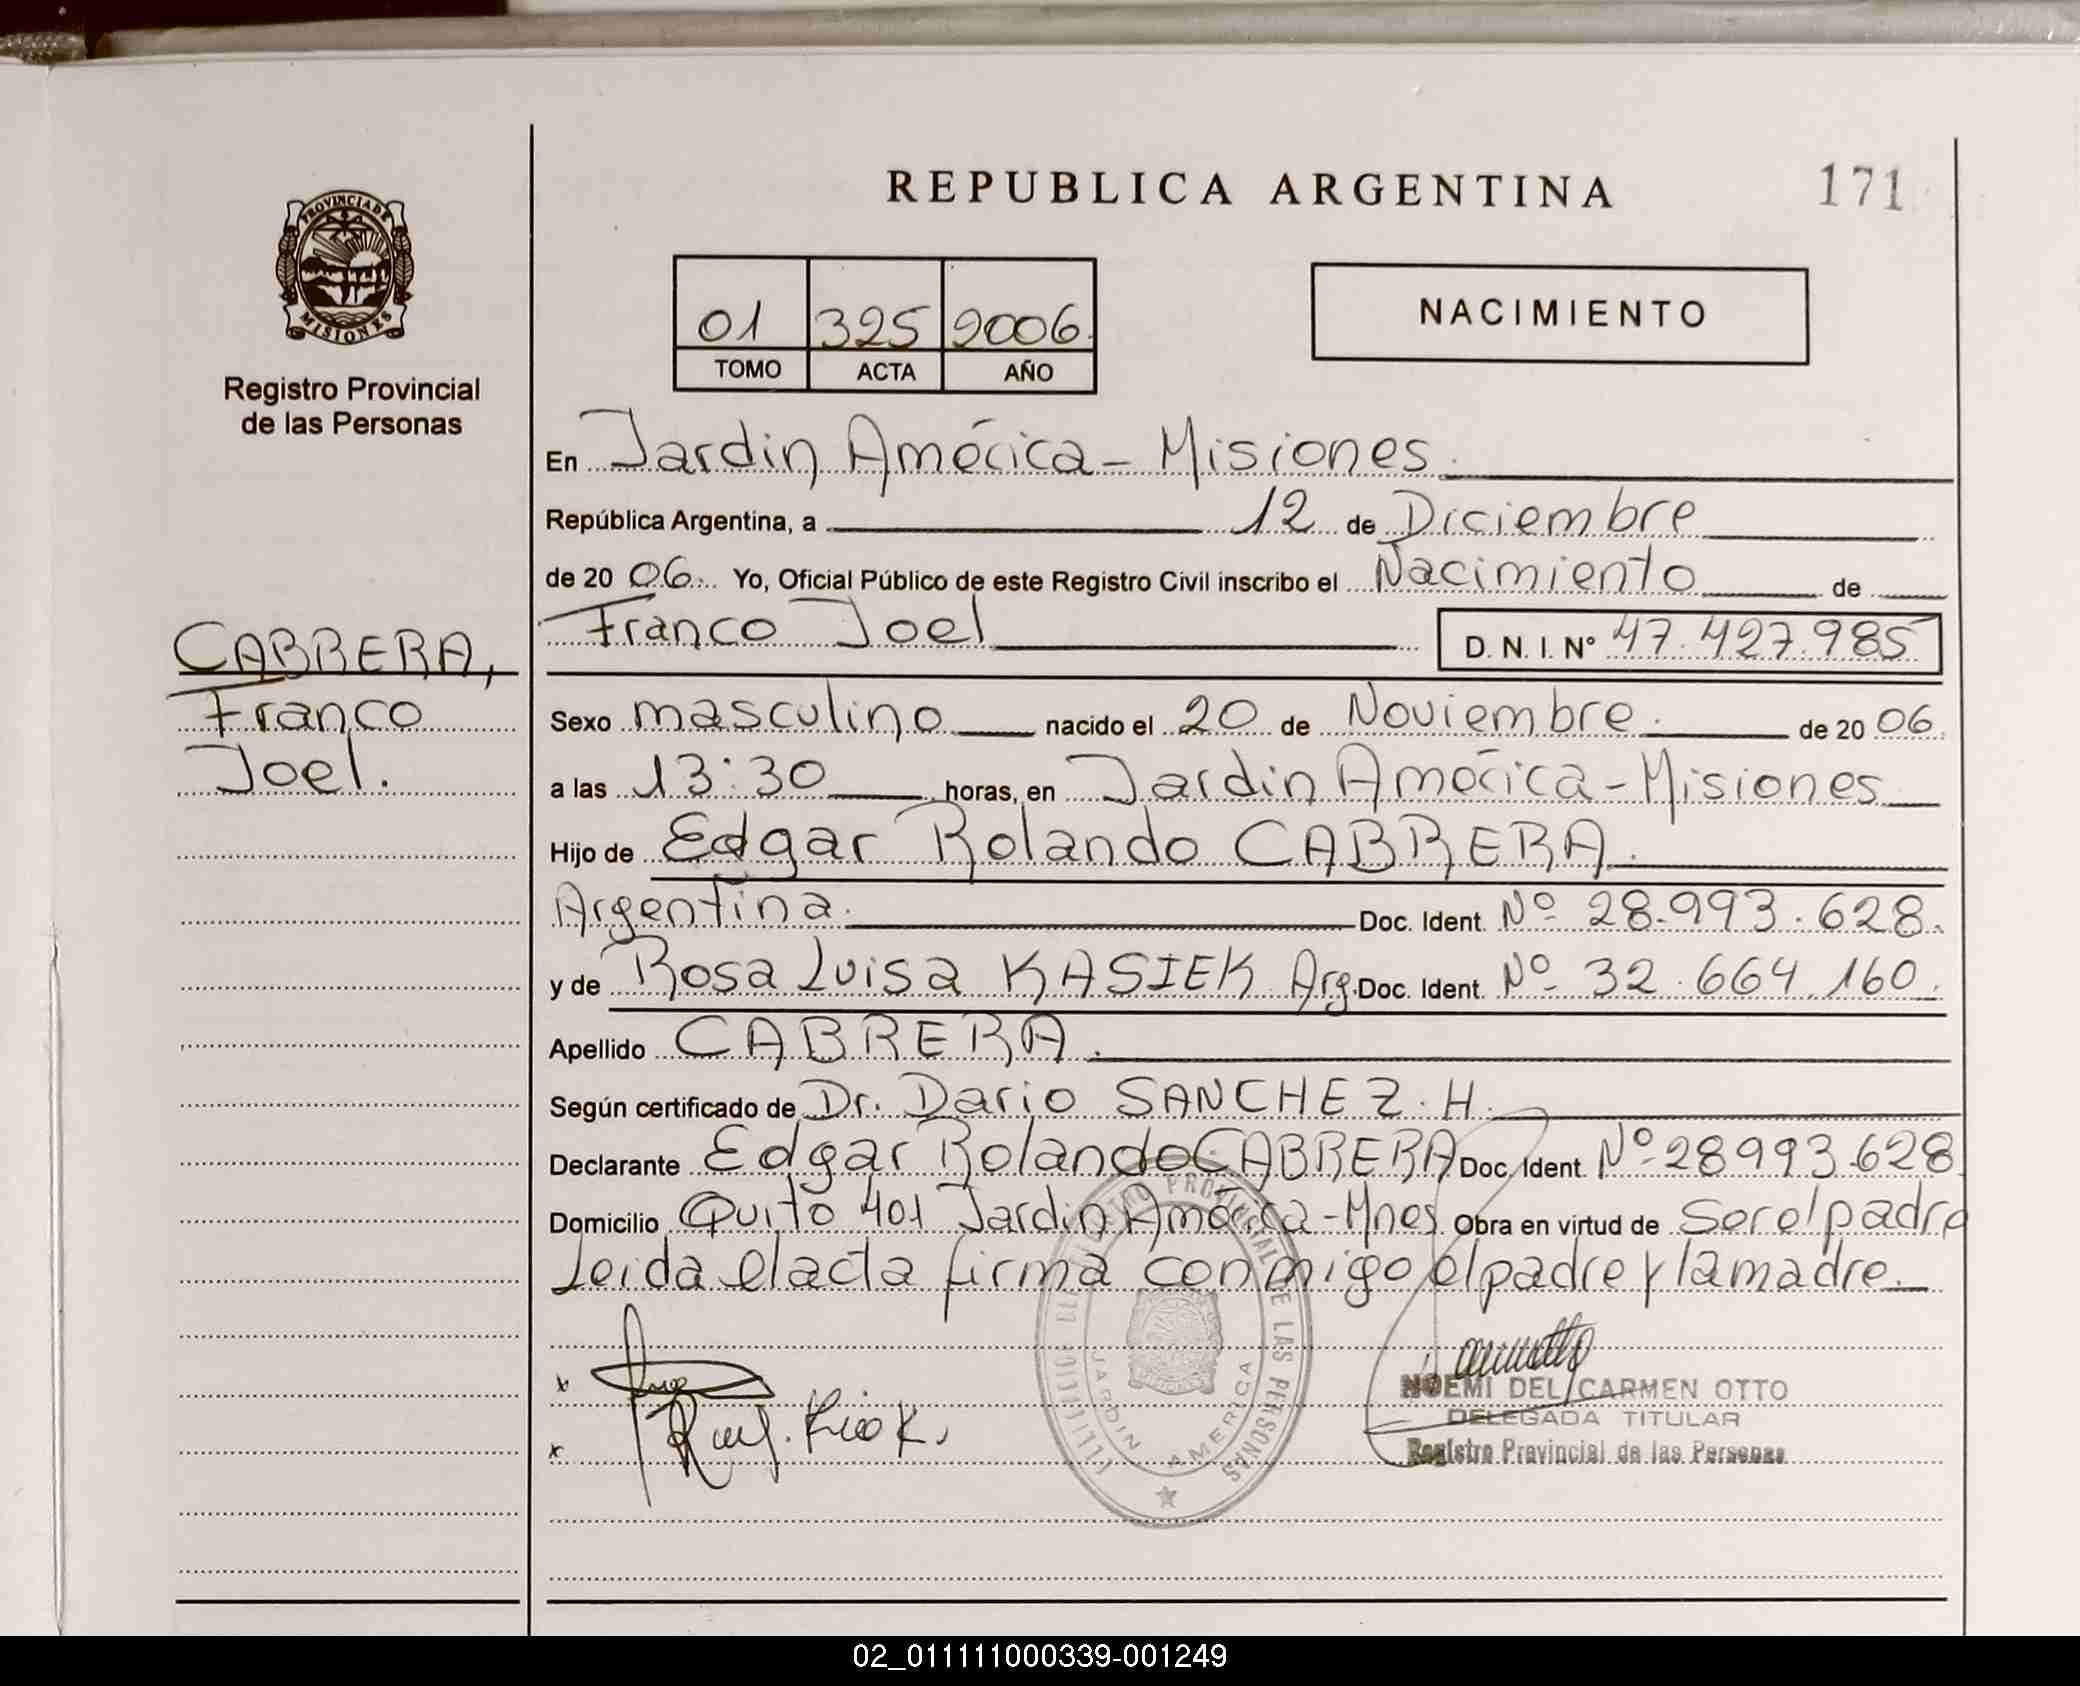 REPUBLICA ARGENTINA
171
PROVINCIA DE MISIONES
Registro Provincial
de las Personas
01 325 2006
TOMO ACTA AÑO
NACIMIENTO
En Jardín América - Misiones.
República Argentina, a 12 de Diciembre
de 20 06. Yo, Oficial Público de este Registro Civil inscribo el Nacimiento de
Franco Joel D. N. I. Nº 47.427.985
CABRERA,
Franco
Joel.
Sexo masculino nacido el 20 de Noviembre. de 20 06.
a las 13:30 horas, en Jardín América - Misiones
Hijo de Edgar Rolando CABRERA.
Argentina. Doc. Ident. Nº 28.993.628.
y de Rosa Luisa KASIEK Arg. Doc. Ident. Nº 32.664.160.
Apellido CABRERA.
Según certificado de Dr. Dario SANCHEZ. H.
Declarante Edgar Rolando CABRERA Doc. Ident. Nº 28993.628
Domicilio Quito 401 Jardín América - Mnes. Obra en virtud de Ser el padre
Leída el acta firma conmigo el padre y la madre.
REGISTRO PROVINCIAL DE LAS PERSONAS
JARDIN AMERICA
x
x
NOEMI DEL CARMEN OTTO
DELEGADA TITULAR
Registro Provincial de las Personas
02_011111000339-001249